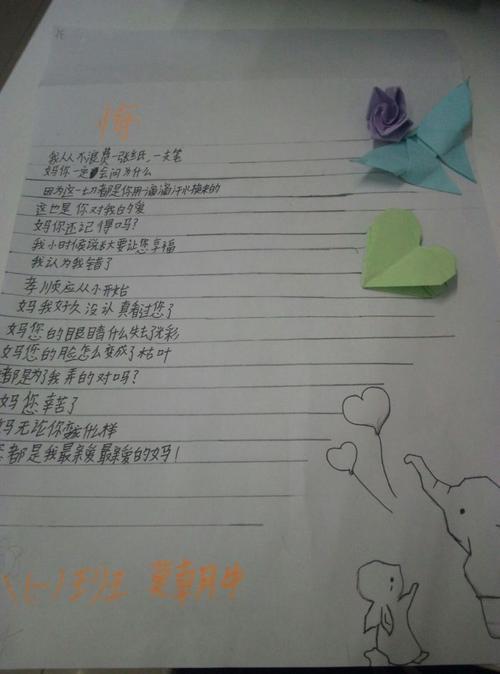 悔
我从不浪费一张纸,一支笔
妈你一定会问为什么
因为这一切都是你用一滴滴汗水换来的
这也是你对我的爱
妈你还记得吗?
我小时候说长大要让您享福
我认为我错了
孝顺应从小开始
妈我好久没认真看过您了
妈您的眼睛什么失去光彩
妈您的脸怎么变成了枯叶
都是为了我弄的对吗?
妈您辛苦了
妈无论你变什么样
都是我最亲爱最亲爱的妈!